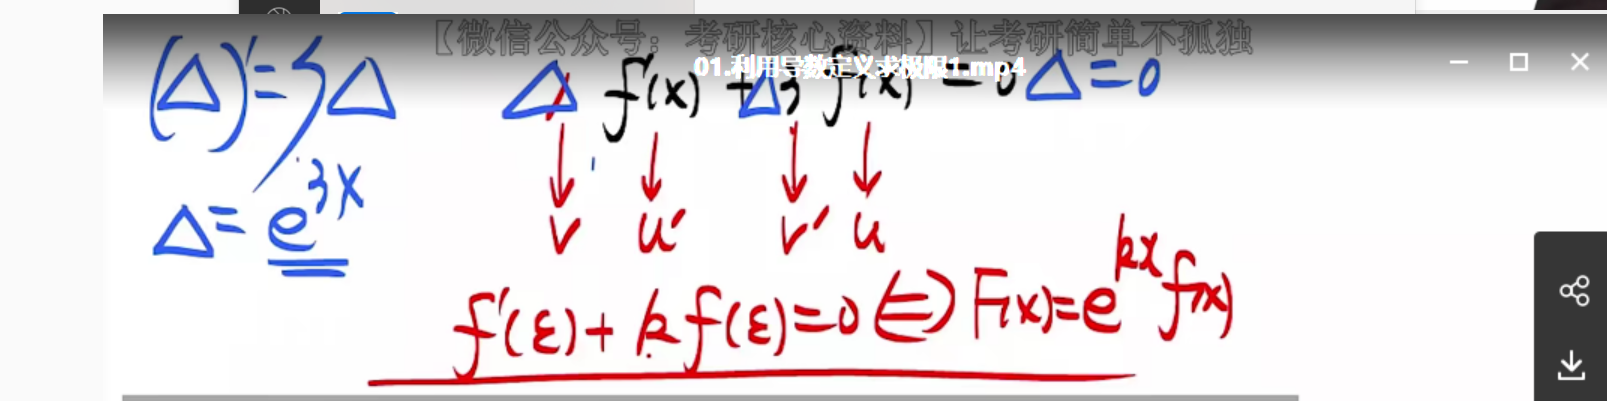 【微信公众号：考研核心资料】让考研简单不孤独
01.利用导数定义求极限1.mp4
(Δ)'=3Δ Δ f'(x) + Δ3 f(x) = 0 Δ=0
Δ=e^{3x}
v u' v' u
f'(ε)+kf(ε)=0 (=) F(x)=e^{kx}f(x)